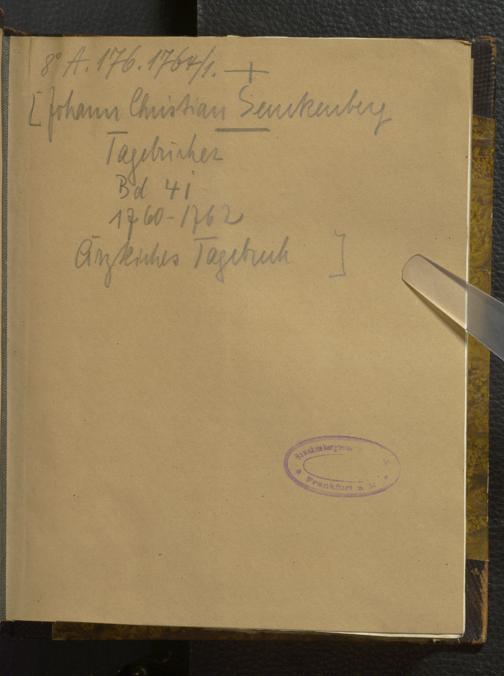 8° A. 176. 1764/1. +
[Johann Christian Senckenberg
Tagebücher
Bd 41
1760-1762
Ärztliches Tagebuch ]
Frankfurt a. M.